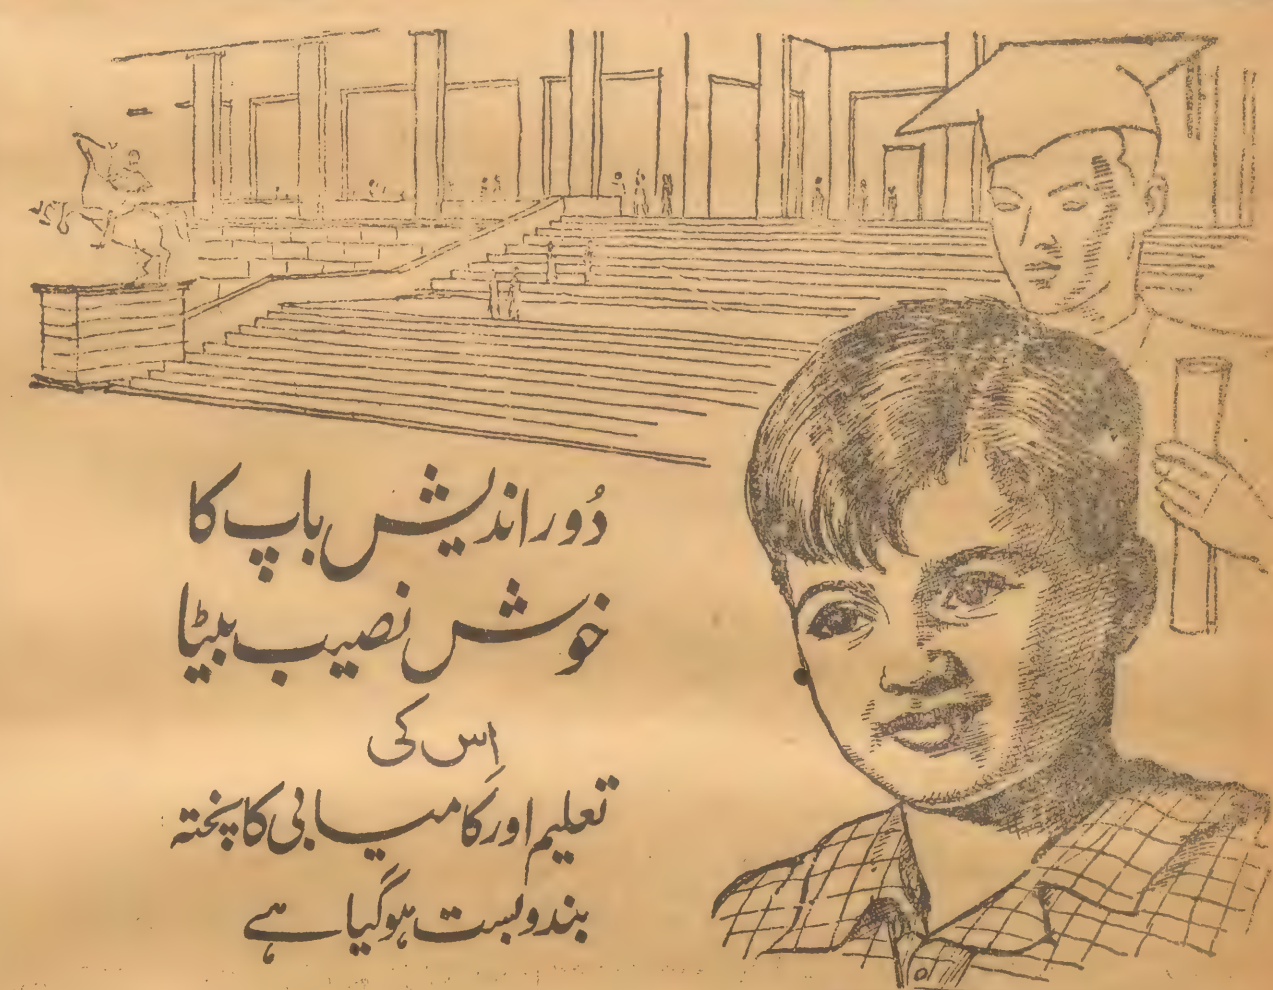 دُور اندیش باپ کا
خوش نصیب بیٹا
اِس کی
تعلیم اور کامیابی کا پختہ
بندوبست ہوگیا ہے